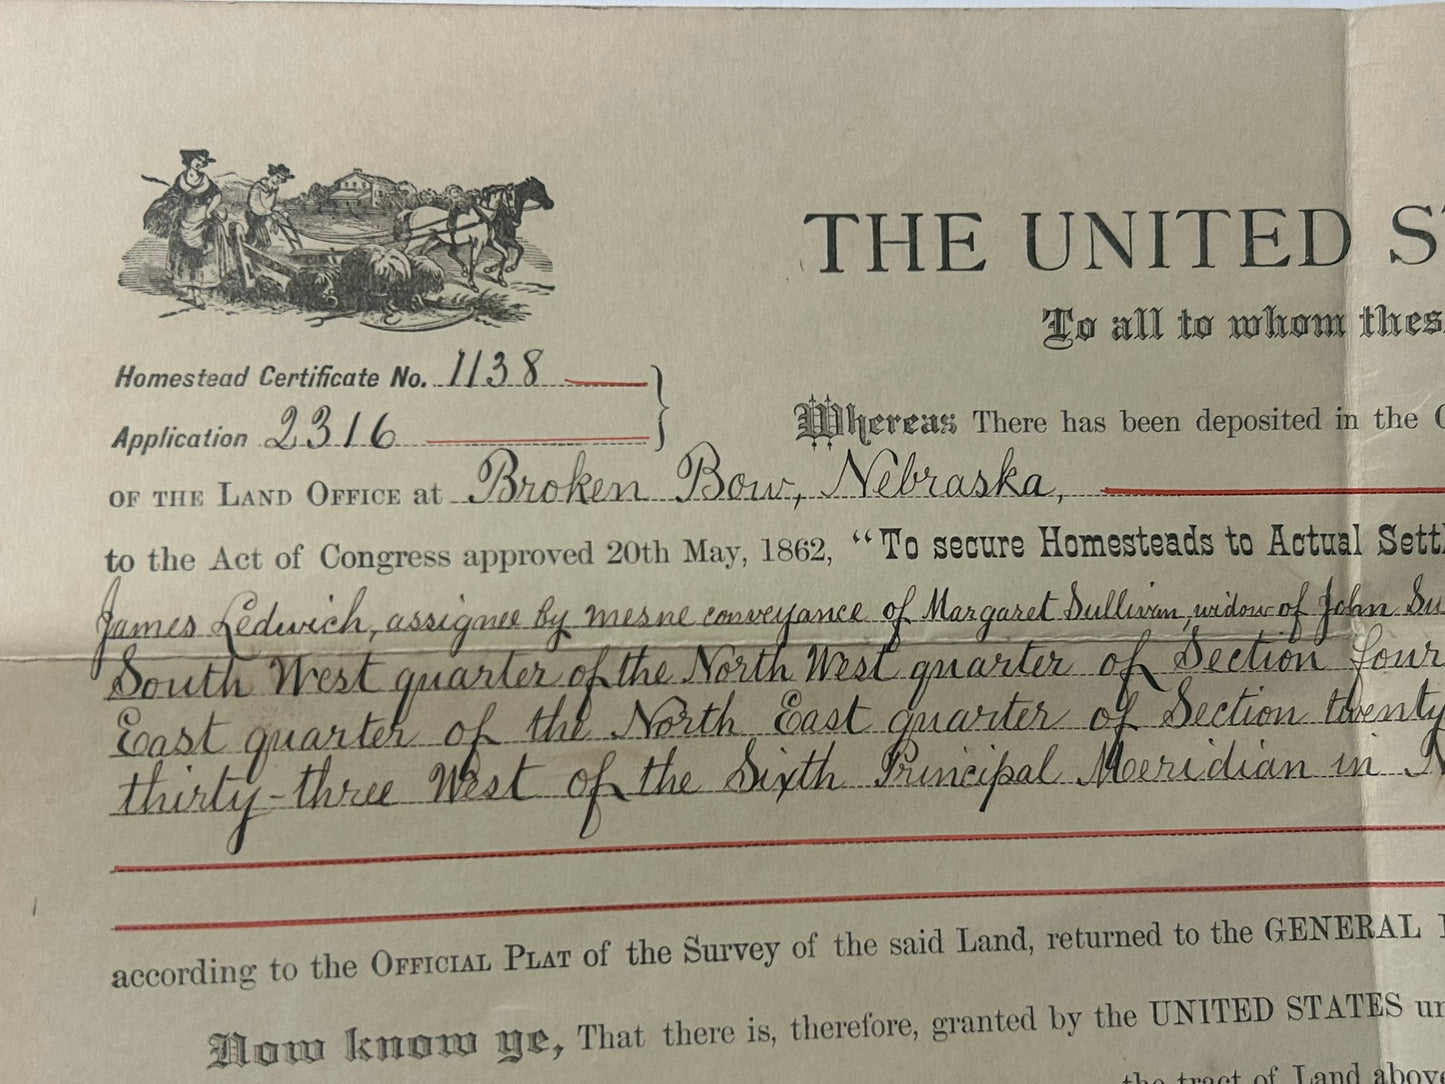 THE UNITED S
To all to whom thes
Homestead Certificate No. 1138
Application 2316
Whereas There has been deposited in the
OF THE LAND OFFICE at Broken Bow, Nebraska,
to the Act of Congress approved 20th May, 1862, "To secure Homesteads to Actual Settl
James Ledwich, assignee by mesne conveyance of Margaret Sullivan, widow of John Su
South West quarter of the North West quarter of Section four
East quarter of the North East quarter of Section twenty
thirty-three West of the Sixth Principal Meridian in N
according to the OFFICIAL PLAT of the Survey of the said Land, returned to the GENERAL
Now know ye, That there is, therefore, granted by the UNITED STATES un
the tract of Land above